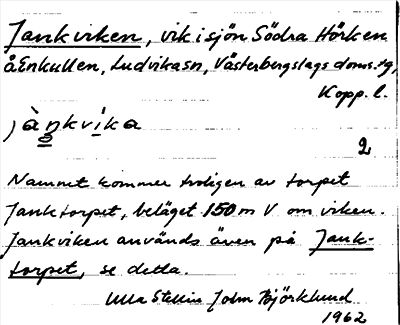 Jankviken, vik i sjön Södra Hörken
å Enkullen, Ludvika sn, Västerbergslags doms.g,
Kopp. l.
jànkvika
2
Namnet kommer troligen av torpet
Janktorpet, beläget 150 m V om viken.
Jankviken används även på Jank-
torpet, se detta.
Ulla Stellin John Björklund
1962